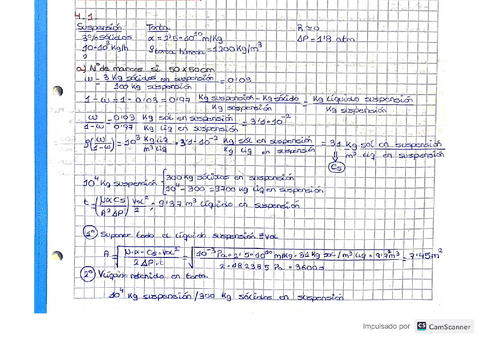 4.1
Suspensión Torta R≃0
3% sólidos α = 2'5·10¹⁰ m/kg ΔP = 1'8 atm
10·10³ kg/h ρtorta húmeda = 1200 kg/m³
a) Nº de marcos si 50x50cm
ω = 3 kg sólidos en suspensión / 100 kg suspensión = 0'03
1-ω = 1-0'03 = 0'97 kg suspensión - kg sólido / kg suspensión = kg líquido suspensión / kg suspensión
ω/1-ω = 0'03/0'97 kg sol en suspensión / kg liq en suspensión = 3'1·10⁻²
ρ(ω/1-ω) = 10³ kg liq / m³ liq · 3'1·10⁻² kg sol en suspensión / kg liq en suspensión = 31 kg sol en suspensión / m³ liq en suspensión
Cs
10⁴ kg suspensión { 300 kg sólidos en suspensión
10⁴-300 = 9700 kg liq en suspensión
t = (μα Cs / A² ΔP) Vol² / 2 ; 9'7 m³ líquido en suspensión
1º Suponer todo el líquido suspensión = Vol
A = √ μ·α·Cs·Vol² / 2 ΔP·t = √ 10⁻³ Pa·s · 2'5·10¹⁰ m/kg · 31 kg sol/m³ liq · 9'7² m³ / 2·182385 Pa · 3600s = 7'45 m²
2º V líquido retenido en torta
10⁴ kg suspensión / 300 kg sólidos en suspensión
Impulsado por CS CamScanner